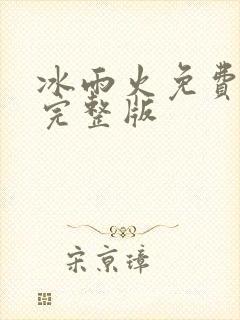 冰雨火免費
完整版
宋京璋